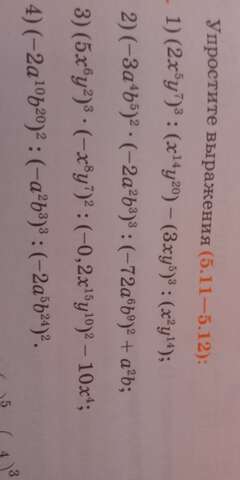 Упростите выражения (5.11—5.12):
1) (2x⁵y⁷)³ : (x¹⁴y²⁰) – (3xy⁵)³ : (x²y¹⁴);
2) (–3a⁴b⁵)² · (–2a²b³)³ : (–72a⁶b⁹)² + a²b;
3) (5x⁶y²)³ · (–x⁸y⁷)² : (–0,2x¹⁵y¹⁰)² – 10x⁴;
4) (–2a¹⁰b²⁰)² : (–a²b³)³ : (–2a⁵b²⁴)².